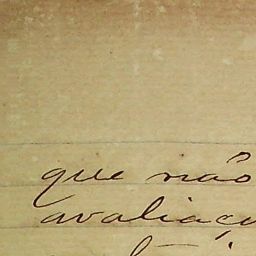 que não
avaliaçõ